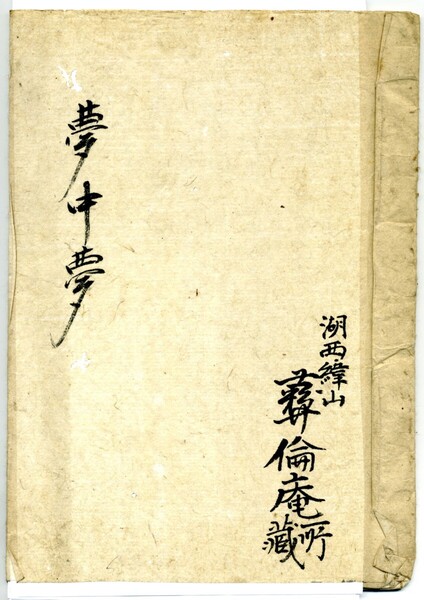 湖西緯山
彛倫庵所藏
夢中夢